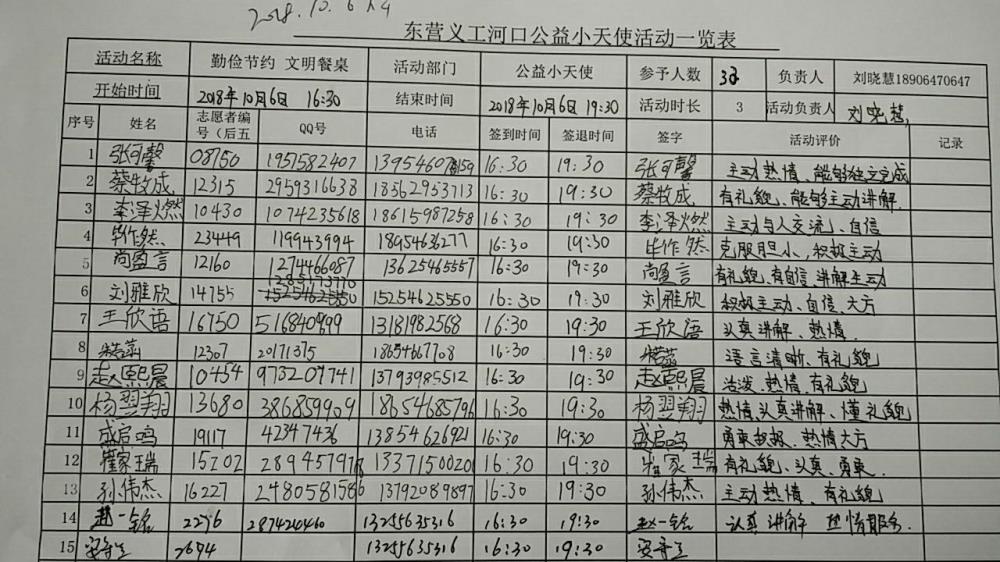 2018.10.6
东营义工河口公益小天使活动一览表
活动名称 勤俭节约 文明餐桌 活动部门 公益小天使 参予人数 负责人 刘晓慧18906470647
开始时间 2018年10月6日 16:30 结束时间 2018年10月6日 19:30 活动时长 3 活动负责人 刘晓慧
序号 姓名 志愿者编号(后五 QQ号 电话 签到时间 签退时间 签字 活动评价 记录
1 张可馨 08750 1951582407 16:30 19:30 张可馨 主动热情、能够独立完成
2 蔡牧成 12315 2959316638 18562953713 16:30 19:30 蔡牧成 有礼貌、能够主动讲解.
3 李泽燃 10430 1074235618 18615987258 16:30 19:30 李泽燃 主动与人交流、自信
4 毕作然 23449 119943994 18954636277 16:30 19:30 毕作然 克服胆小,积极主动
5 尚盈言 12160 1274466087 13625465557 16:30 19:30 尚盈言 有礼貌、有自信、讲解主动
6 刘雅欣 14755 15254625550 16:30 19:30 刘雅欣 积极主动、自信、大方
7 王欣语 16750 13181982568 16:30 19:30 王欣语 认真讲解、热情.
8 朱若菡 12307 20171375 18654667708 16:30 19:30 朱若菡 语言清晰、有礼貌
9 赵熙晨 10454 973209741 13793985512 16:30 19:30 赵熙晨 活泼、热情、有礼貌
10 杨翌翔 13680 386859909 18654685796 16:30 19:30 杨翌翔 热情认真讲解、懂礼貌
11 盛启鸣 19117 42347436 13854626921 16:30 19:30 盛启鸣 勇敢积极、热情大方
12 崔家瑞 15202 13371500201 16:30 19:30 崔家瑞 有礼貌、认真、勇敢.
13 孙伟杰 16227 2480581586 13792089897 16:30 19:30 孙伟杰 主动热情、有礼貌
14 赵一铭 2276 287420460 13255635316 16:30 19:30 赵一铭 认真讲解 热情服务.
15 2674 13255635316 16:30 19:30